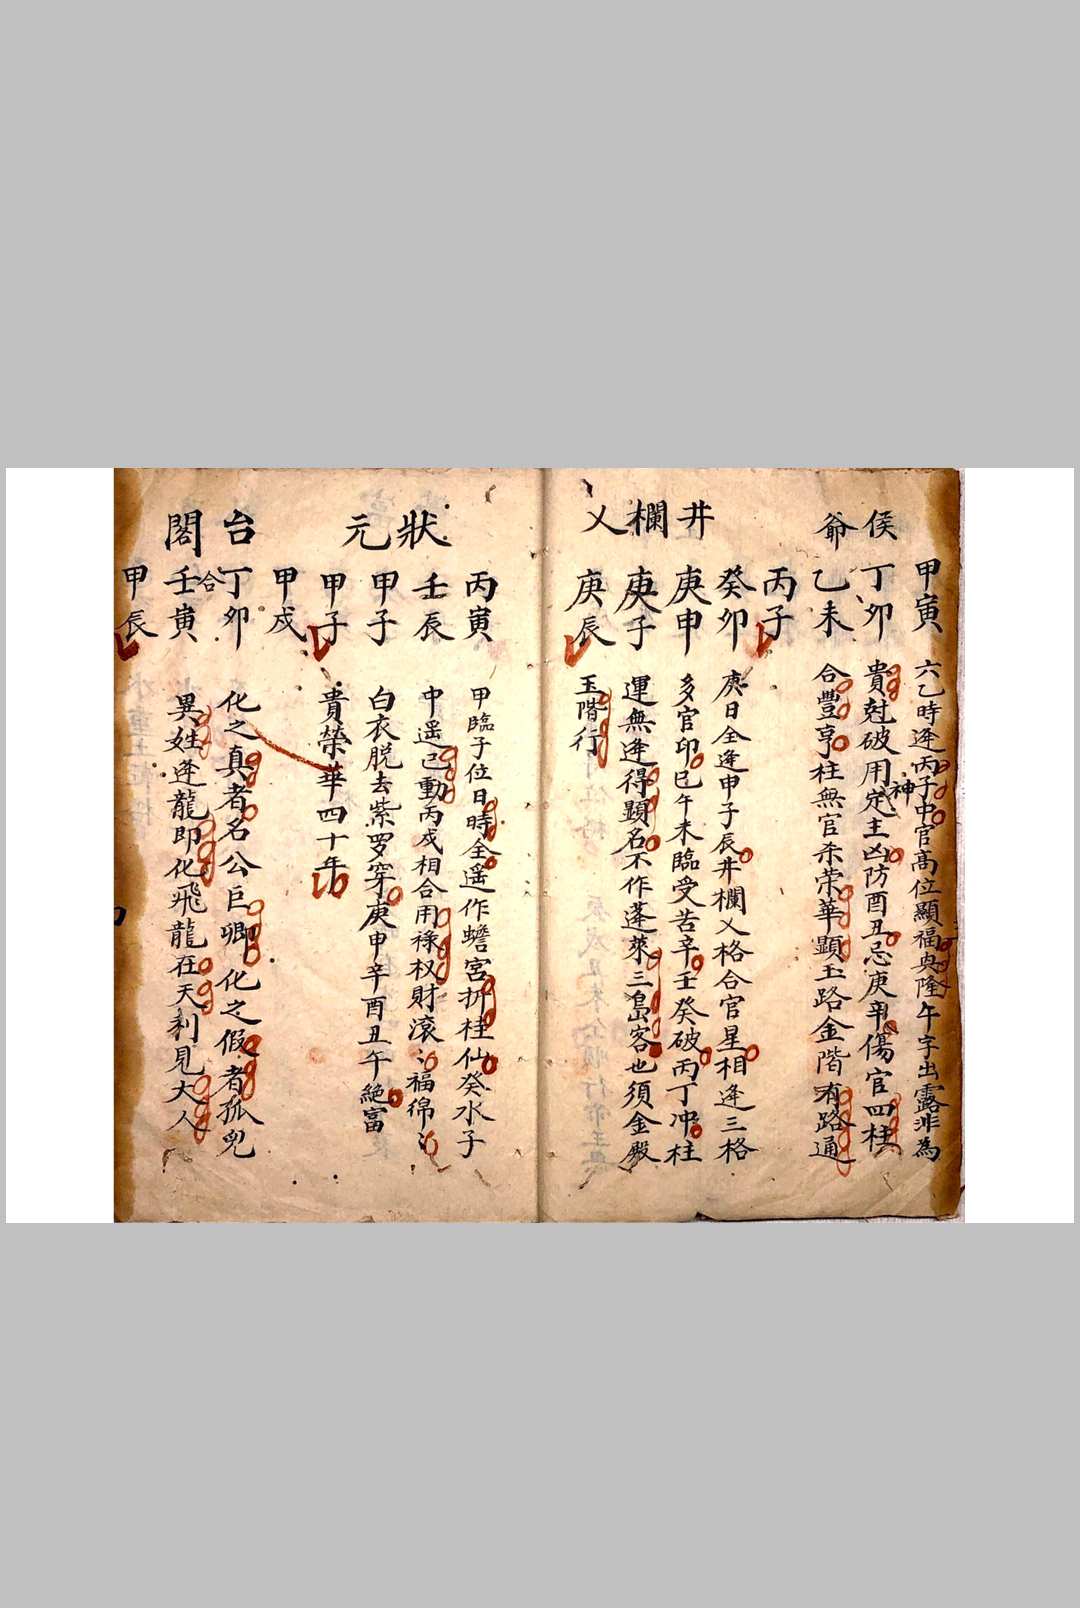 侯爺
甲寅 六乙時逢丙子中官高位顯福奐隆午字出露非為
丁卯 貴尅破用神定主凶防酉丑忌庚辛傷官四柱
乙未 合豐亨柱無官來荣華顯玉路金階有路通
丙子
井欄乂
癸卯 庚日全逢申子辰井欄乂格合官星相逢三格
庚申 多官印巳午未臨受苦辛壬癸破丙丁冲柱
庚子 運無逢得顯名不作蓬萊三島客也須金殿
庚辰 玉階行
狀元
丙寅 甲臨子位日時全遥作蟾宮折桂仙癸水子
壬辰 中遥己動丙戌相合用祿权財滾〻福綿〻
甲子 白衣脱去紫罗穿庚申辛酉丑午絶富
甲子 貴榮華四十年
甲戌
台閣
丁卯 化之真者名公巨卿化之假者孤兒
壬寅 異姓逢龍即化飛龍在天利見大人
合
甲辰